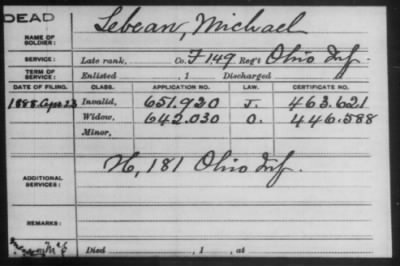 DEAD
NAME OF SOLDIER: Lebean, Michael
SERVICE: Late rank, Co. F 149 Reg't Ohio Inf.
TERM OF SERVICE: Enlisted , 1 Discharged
DATE OF FILING. CLASS. APPLICATION NO. LAW. CERTIFICATE NO.
1888 Apr 23 Invalid, 651.920 J. 463.621
Widow, 642.030 O. 446.588
Minor,
ADDITIONAL SERVICES: H, 181 Ohio Inf.
REMARKS:
Died , 1 , at